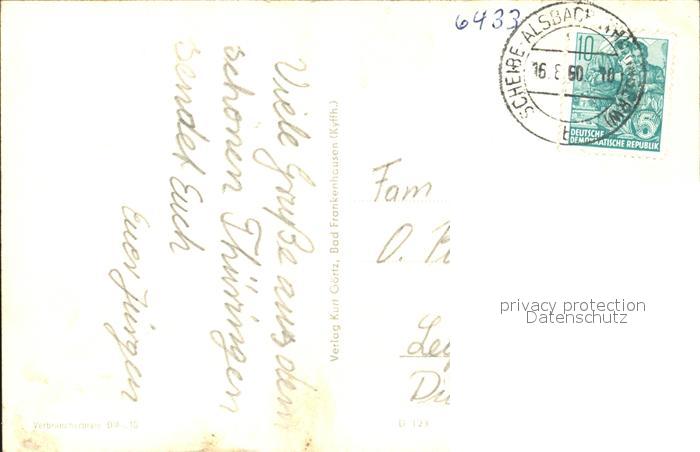 6433
SCHEIBE-ALSBACH
16.8.60.-10
b
10
DEUTSCHE
DEMOKRATISCHE REPUBLIK
Viele Grüße aus dem
schönen Thüringen
sendet Euch
Euer Jürgen
Verlag Kurt Görtz, Bad Frankenhausen (Kyffh.)
Fam
O.
privacy protection
Datenschutz
Verbraucherpreis DM -.15
D 123